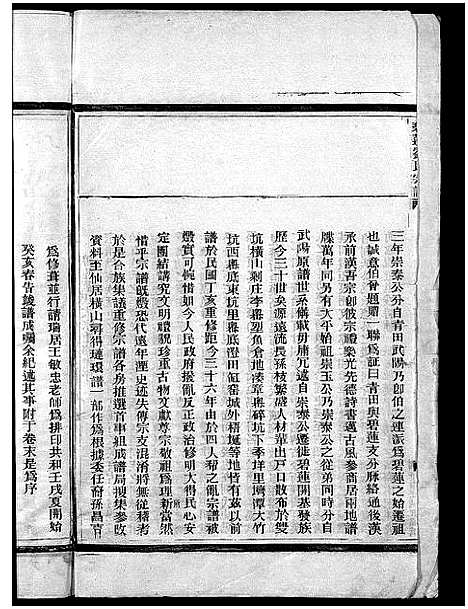 三年崇泰公分自青田武陽乃卽伯之連派爲碧蓮之始遷祖
也誠意伯曾題贈一聯爲証曰青田與碧蓮支分脉絡通後漢
承前漢吾宗卽彼宗禮樂光先德詩書遇古風參商居兩地
朦萬年同另有太平始祖崇玉公乃崇泰公之從弟同時分自
武陽原譜世系勛儀毋庸冗述自崇泰公碧蓮開基發族
歷今三十世矣源遠流長孫枝繁盛人材輩出戶口散布於雙
坑橫山剩庄李㟧塱魚倉地湊章㟧碎坑下季垟里塆潭大竹
坑西㟧底東坑里㟧底澄田缸窑城外梧埏等地惜有茲以前
譜於民國丁亥重修距今三十六年由於四人幫之亂宗譜被
燬實可惋惜如今人民政府撥亂反正政治修明大得民心安
定團結講究文明禮貌珍重古物文獻尊宗敬祖爲理所當然
惜乎宗譜旣燬恐代遠年湮史迹失傳宗支混淆將無從稽考
於是合族集議重修宗譜各房推選首事組成譜局搜集參攷
資料壬仙居橫山尋得璉環譜一部作爲根據委任裔孫昌育
爲修篡並行譜瑞居王敏忠老師爲排印共和壬戌夏開始
癸亥春告竣譜成囑余紀述其事附丁卷末是爲序